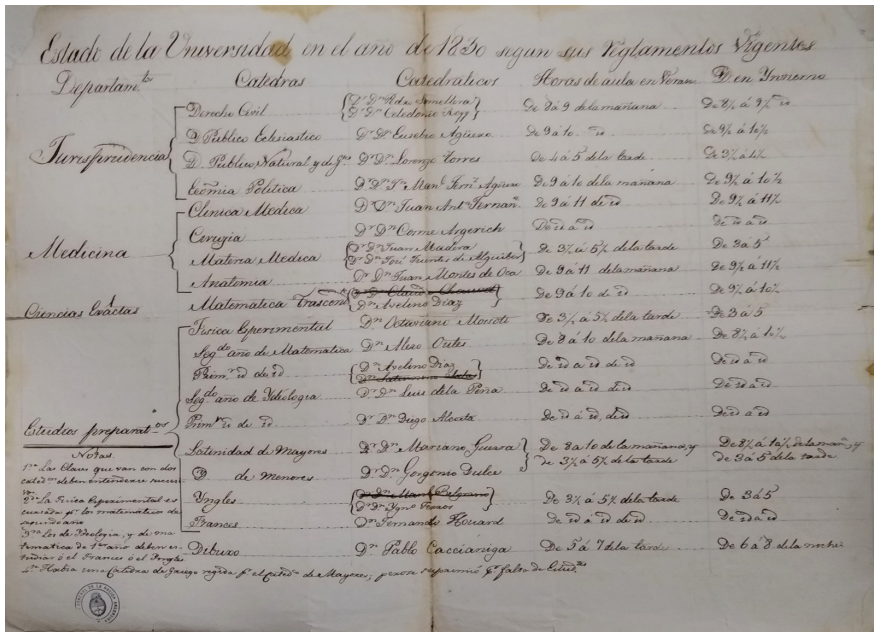 Estado de la Universidad en el año de 1830 segun sus Reglamentos Vigentes
Departam.tos Catedras Catedraticos Horas de aula en Veran. Yd en Ynvierno
Derecho Civil Dr. Dn. Celedonio De 8 á 9 de la mañana De 8½ á 9½ id
D. Publico Eclesiastico Dr. Dn. Eusebio Agüero De 9 á 10 id De 9½ á 10½
Jurisprudencia
D. Publico, Natural y de Dr. Dn. Lorenzo Torres De 4 á 5 de la tarde De 3½ á
Economia Politica Dr. Dn. Man.l Agüero De 9 á 10 de la mañana De 9½ á 10½
Clinica Medica Dr. Dn. Juan Ant.o Fernan. De 9 á 11 de id De 9½ á 11½
Cirugia Dr. Dn. Cosme Argerich De id á id De id á id
Medicina
Materia Medica Dr. Dn. Juan Madera De 3½ á 5½ de la tarde De 3 á 5
Dr. Dn. José Fuentes de
Anatomia Dr. Dn. Juan Montes de Oca De 9 á 11 de la mañana De 9½ á 11½
Dr. Dn. Claudio
Ciencias Exactas Matematica Dn. Avelino Diaz De 9 á 10 de id De 9½ á 10½
Fisica Esperimental Dn. Octaviano Mosoti De 3½ á 5½ de la tarde De 3 á 5
Seg.do año de Matematica Dn. Alexo Outes De 8 á 10 de la mañana De 8½ á 10½
Prim.r id de id Dn. Avelino Diaz De id á id de id De id á id
Seg.do año de Ydeologia Dr. Dn. Luis de la Peña De id á id de id De id á id
Prim.r id de id Dr. Dn. Diego Alcorta De id á id, de id De id á id
Estudios preparat.os
Latinidad de Mayores Dr. Dn. Mariano Guerra De 8 a 10 de la mañana, y De 8½ á 10½ de la mañ.a, y
D. de menores Dr. Dn. Gorgonio Dulce de 3½ á 5½ de la tarde de 3 á 5 de la tarde
Dr. Dn. Man.l Belgrano
Yngles Dr. Dn. Ygn.o Ferros De 3½ á 5½ de la tarde De 3 á 5
Frances Dn. Fernando De id á id de id De id á id
Dibuxo Dn. Pablo Caccianiga De 5 á 7 de la tarde De 6 á 8 de la noche
Notas.
1.a Las Clases que van con dos
cated.os deben entenderse
2.a La Fisica Esperimental es
cursada p.r los matematicos de
segundo año
3.a Los de Ydeologia, y de ma-
tematica de 1.er año deben es-
tudiar ó el Frances ó el Yngles
4.a Habia una Catedra de Griego regida p.r el cated.o de Mayores; pero se suprimió p.r falta de Estud.tes